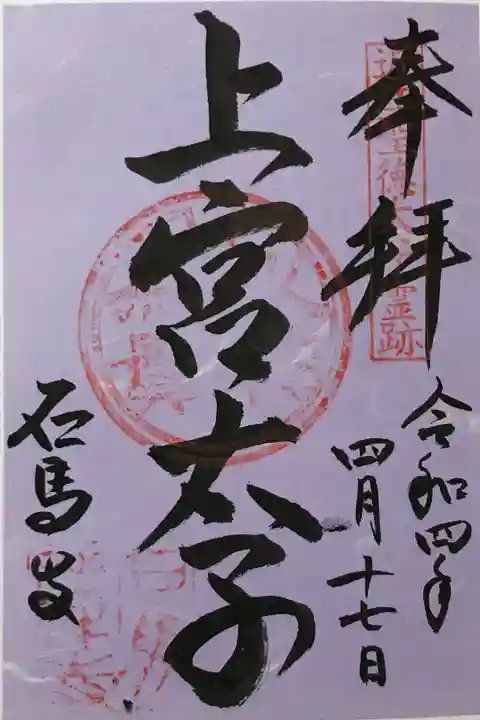 奉拝
聖徳太子霊跡
令和四年
四月十七日
上宮太子
石馬寺